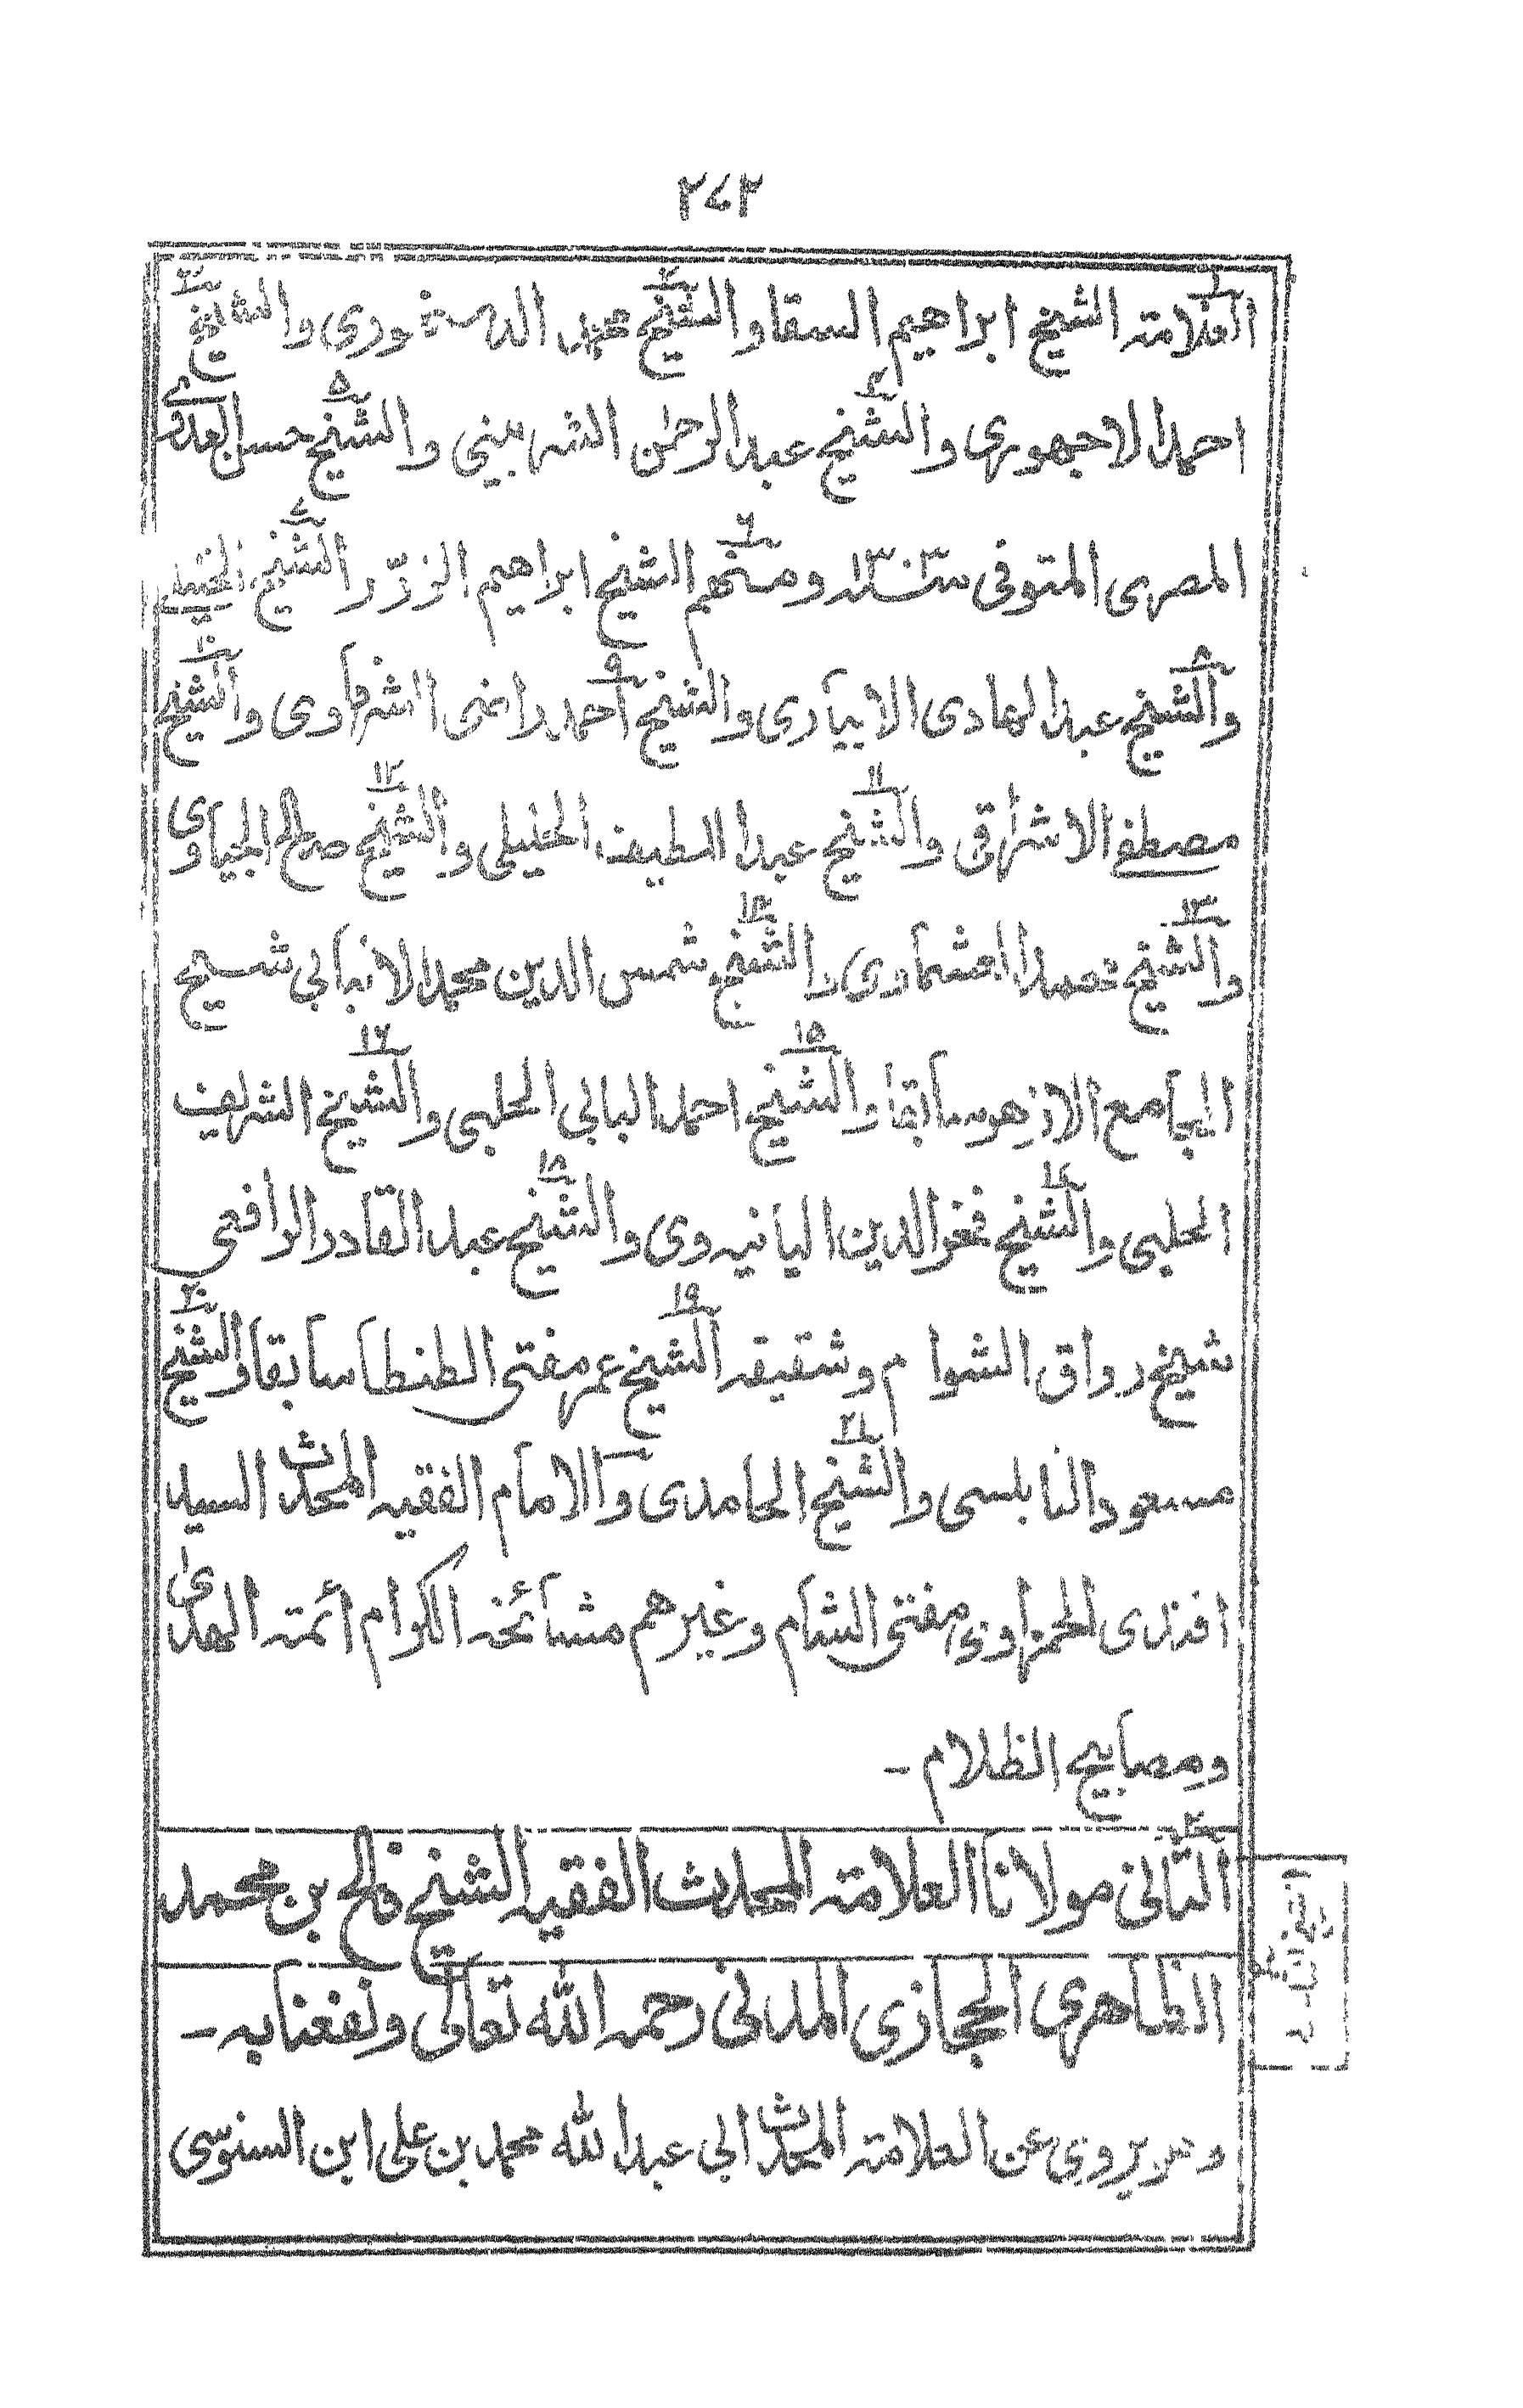 ٢٧٢
العلامة الشيخ ابراهيم السقا والشيخ محمد الدمنهوري والشيخ
احمد الاجهوری والشيخ عبد الرحمن الشربيني والشيخ حسن العدوی
المصری المتوفی سنة ١٣٠٣ ومنهم الشيخ ابراهيم الزرّو والشيخ الخليلي
والشيخ عبد الهادی الابياری والشيخ احمد رافعی الشرقاوی والشيخ
مصطفے الاشراقی والشيخ عبد اللطيف الخليلی والشيخ صالح الجياوی
والشيخ محمد العشماوی والشيخ شمس الدين محمد الانبابی شيخ
الجامع الازهر سابقا والشيخ احمد البابی الحلبی والشيخ الشريف
الحلبی والشيخ فخر الدين اليانيه وی والشيخ عبد القادر الرافعی
شيخ رواق الشوام وشقيقه الشيخ عمر مفتی الطنطا سابقا والشيخ
مسعود النابلسی والشيخ الحامدی والامام الفقيه المحدث السيد
افندی الحمزاوی مفتی الشام وغيرهم مشائخه الكرام ائمة الهدى
ومصابيح الظلام ـ
الثانی مولانا العلامة المحدث الفقيه الشيخ فالح بن محمد
الظاهری الحجازی المدنی رحمه الله تعالی ونفعنا به ـ
وهو يروی عن العلامة المحدث ابی عبد الله محمد بن علی ابن السنوسی